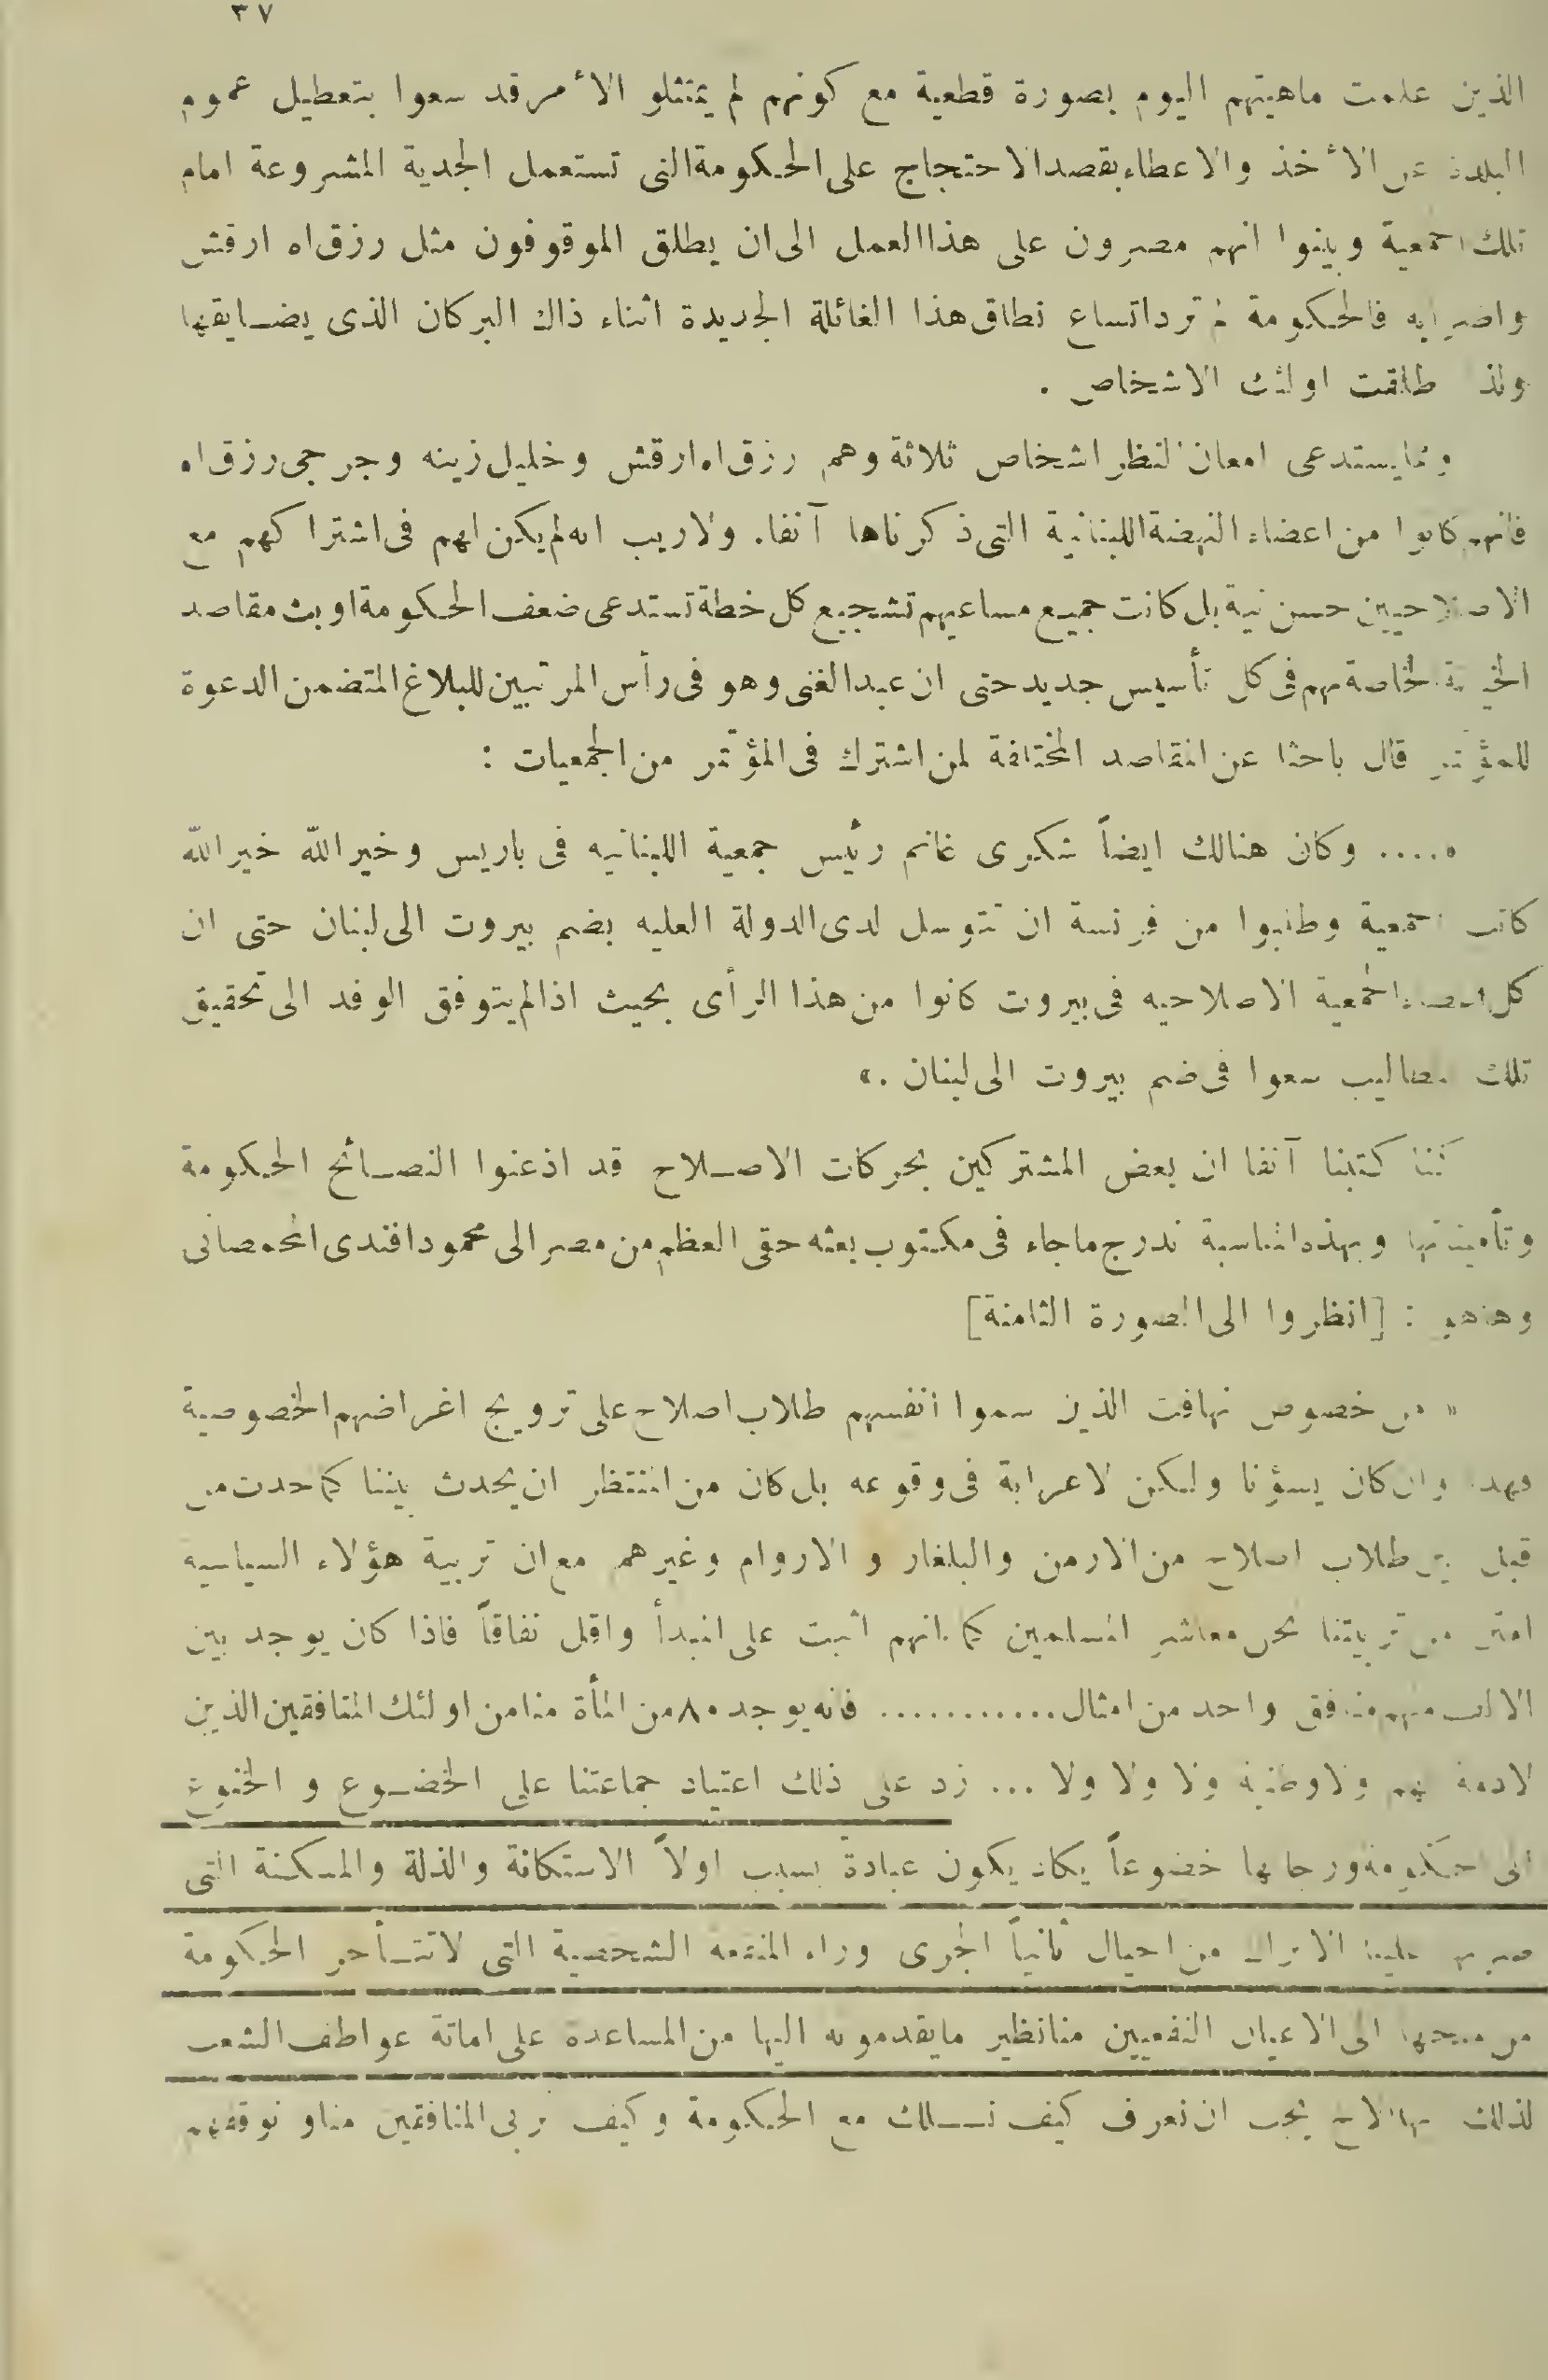 ٣٧
الذين علمت ماهيتهم اليوم بصورة قطعية مع كونهم لم يمتثلو الأمر قد سعوا بتعطيل عموم
البلدة عن الأخذ والاعطاء بقصد الاحتجاج على الحكومة التى تستعمل الجدية المشروعة امام
تلك الجمعية وبينوا انهم مصرون على هذا العمل الى ان يطلق الموقوفون مثل رزق اه ارقش
واضرابه فالحكومة لم ترد اتساع نطاق هذا الغائلة الجديدة اثناء ذاك البركان الذى يضايقها
ولذا اطلقت اولئك الاشخاص .
ومما يستدعى امعان النظر اشخاص ثلاثة وهم رزق اه ارقش وخليل زينه وجرجى رزق اه
فانهم كانوا من اعضاء النهضة اللبنانية التى ذكرناها آنفا. ولا ريب انه لم يكن لهم فى اشتراكهم مع
الاصلاحيين حسن نية بل كانت جميع مساعيهم تشجيع كل خطة تستدعى ضعف الحكومة او بث مقاصد
الخاصة بهم فى كل تأسيس جديد حتى ان عبد الغنى وهو فى رأس المرتبين للبلاغ المتضمن الدعوة
للمؤتمر قال باحثا عن المقاصد المختلفة لمن اشترك فى المؤتمر من الجمعيات :
« .... وكان هنالك ايضاً شكرى غانم رئيس جمعية اللبنانيه فى باريس وخير الله خير الله
كاتب الجمعية وطلبوا من فرنسة ان تتوسل لدى الدولة العليه بضم بيروت الى لبنان حتى ان
كل اعضاء الجمعية الاصلاحيه فى بيروت كانوا من هذا الرأى بحيث اذا لم يتوفق الوفد الى تحقيق
تلك المطاليب سعوا فى ضم بيروت الى لبنان .»
كنا كتبنا آنفا ان بعض المشتركين بحركات الاصلاح قد اذعنوا النصائح الحكومة
وتأميناتها وبهذه المناسبة ندرج ما جاء فى مكتوب بعثه حقى العظم من مصر الى محمود افندى المحمصانى
وها هو : [انظروا الى الصورة الثامنة]
« من خصوص تهافت الذين سموا انفسهم طلاب اصلاح على ترويج اغراضهم الخصوصية
فهذا وان كان يسؤنا ولكن لا غرابة فى وقوعه بل كان من المنتظر ان يحدث بيننا كما حدث من
قبل بين طلاب اصلاح من الارمن والبلغار و الاروام وغيرهم مع ان تربية هؤلاء السياسيه
امتن من تربيتنا نحن معاشر المسلمين كما انهم اثبت على المبدأ واقل نفاقاً فاذا كان يوجد بين
الالف منهم منافق واحد من امثال ............ فانه يوجد ٨٠ من المأة منا من اولئك المنافقين الذين
لا ذمة لهم ولا وطنية ولا ولا ولا ... زد على ذلك اعتياد جماعتنا على الخضوع و الخنوع
الى الحكومة ورجالها خضوعاً يكاد يكون عبادة بسبب اولاً الاستكانة والذلة والمسكنة التى
علينا الاتراك من اجيال ثانياً الجرى وراء المنفعه الشخصية التى لا تتأخر الحكومة
من منحها الى الاعيان النفعيين منا نظير ما يقدمونه اليها من المساعدة على اماتة عواطف الشعب
لذلك يجب ان نعرف كيف نسلك مع الحكومة وكيف نربى المنافقين منا و نوقفهم